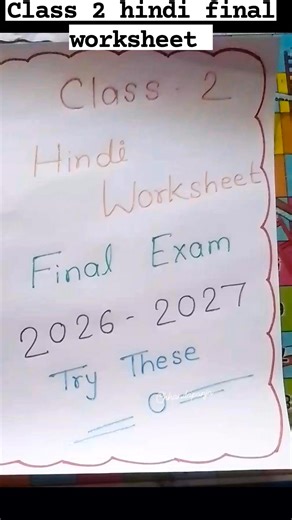 Class 2 hindi final
worksheet
Class - 2
Hindi
Worksheet
Final Exam
2026-2027
Try These